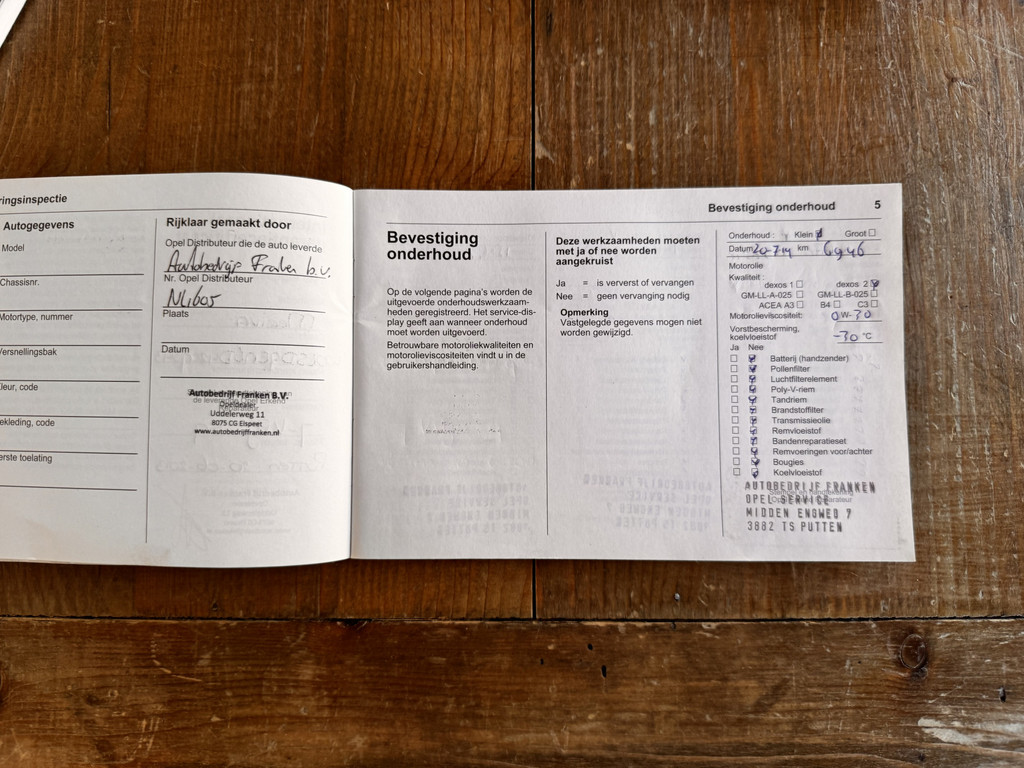 ringsinspectie
Autogegevens
Model
Chassisnr.
Motortype, nummer
Versnellingsbak
leur, code
ekleding, code
erste toelating
Rijklaar gemaakt door
Opel Distributeur die de auto leverde
Autobedrijf Franken b.v.
Nr. Opel Distributeur
NL1605
Plaats
Datum
Autobedrijf Franken B.V.
Opeldealer
Uddelerweg 11
8075 CG Elspeet
www.autobedrijffranken.nl
Bevestiging onderhoud 5
Bevestiging
onderhoud
Op de volgende pagina's worden de
uitgevoerde onderhoudswerkzaam-
heden geregistreerd. Het service-dis-
play geeft aan wanneer onderhoud
moet worden uitgevoerd.
Betrouwbare motoroliekwaliteiten en
motorolieviscositeiten vindt u in de
gebruikershandleiding.
Deze werkzaamheden moeten
met ja of nee worden
aangekruist
Ja = is ververst of vervangen
Nee = geen vervanging nodig
Opmerking
Vastgelegde gegevens mogen niet
worden gewijzigd.
Onderhoud : Klein Groot
Datum 20-7-14 km 6946
Motorolie
Kwaliteit :
dexos 1 dexos 2
GM-LL-A-025 GM-LL-B-025
ACEA A3 B4 C3
Motorolieviscositeit: 0W-30
Vorstbescherming,
koelvloeistof -30 °C
Ja Nee
Batterij (handzender)
Pollenfilter
Luchtfilterelement
Poly-V-riem
Tandriem
Brandstoffilter
Transmissieolie
Remvloeistof
Bandenreparatieset
Remvoeringen voor/achter
Bougies
Koelvloeistof
AUTOBEDRIJF FRANKEN
OPEL SERVICE
MIDDEN ENGWEG 7
3882 TS PUTTEN